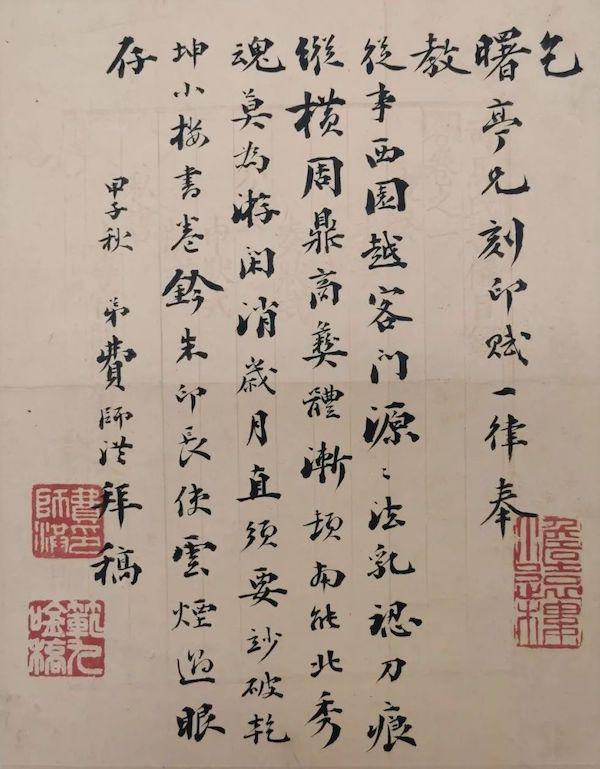 乞
曙亭兄刻印賦一律奉
教
從事西園越客門源〻法乳認刀痕
縱橫周鼎商彝體漸頓南能北秀
魂莫為游閑消歲月直須要眇破乾
坤小樓書卷鈐朱印長使雲煙過眼
存
甲子秋 弟費師洪拜稿
費印師洪
範九吟稿